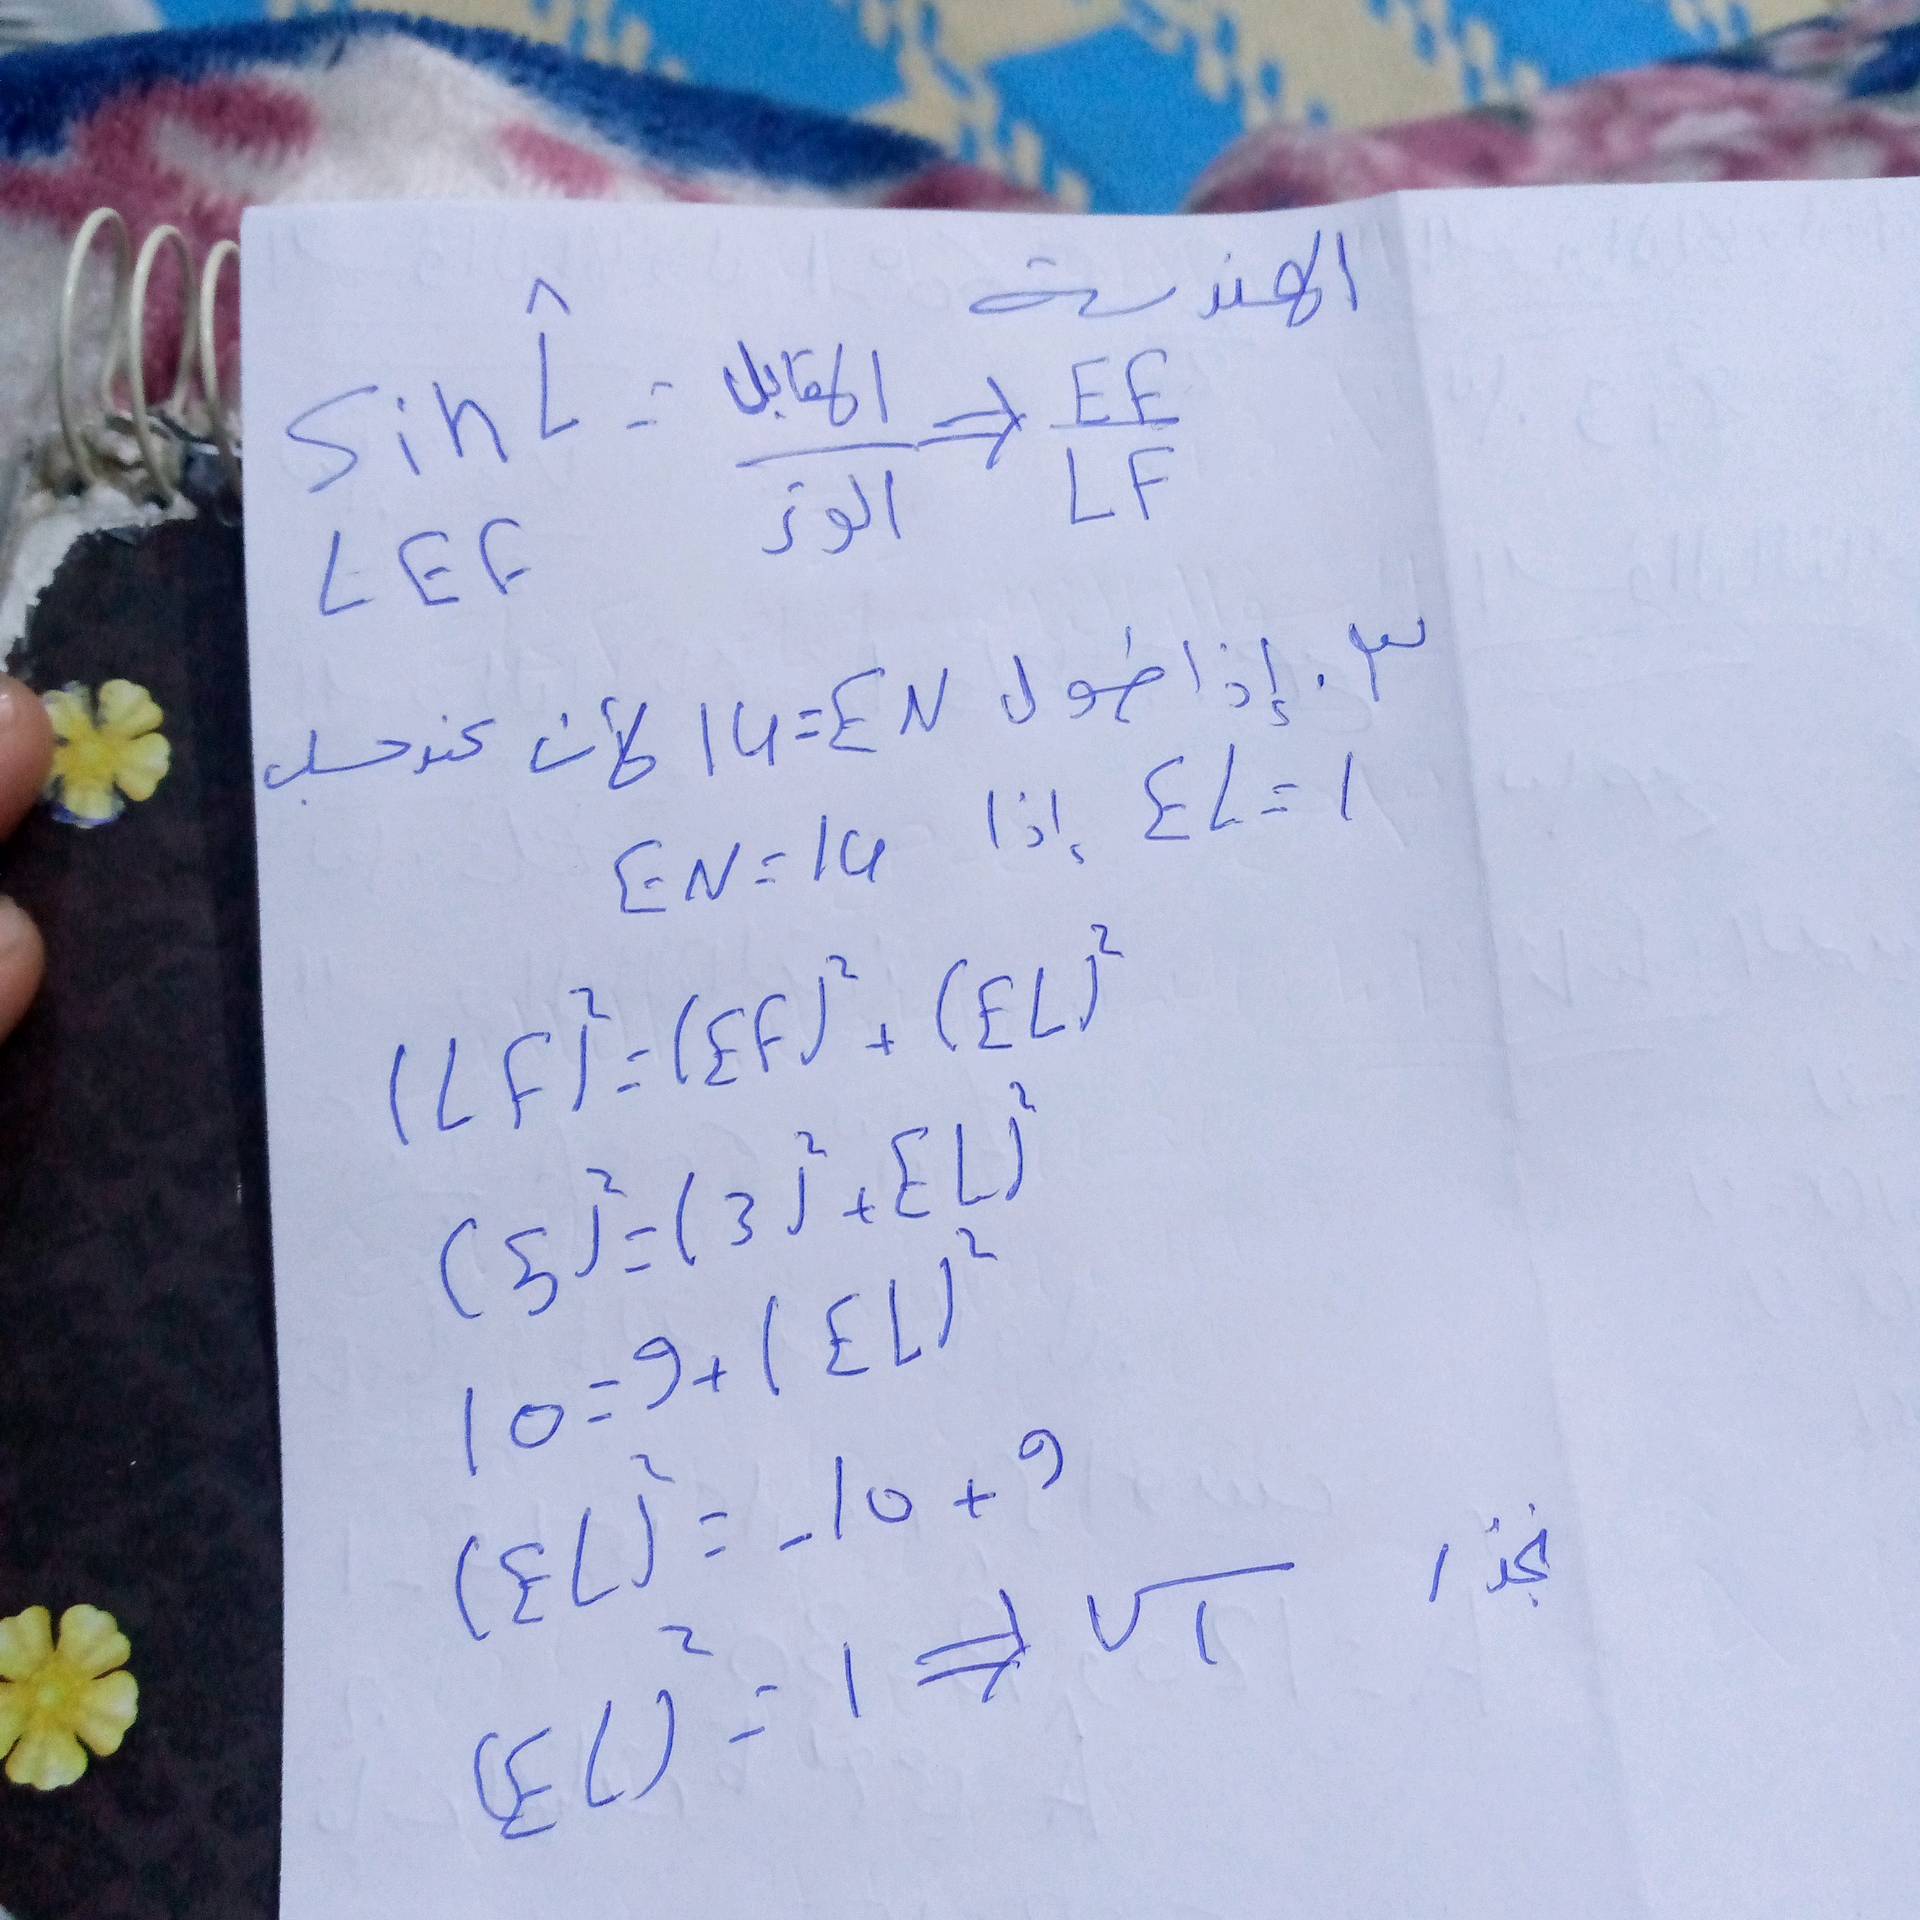 الهندسة
Sin L̂ = المقابل / الوتر ⇒ EF / LF
LEF
٣. إذا طول EN=14 لأن عند حسب
EL=1 إذا EN=14
(LF)²=(EF)²+(EL)²
(5)²=(3)²+EL)²
10=9+(EL)²
(EL)²=-10+9
(EL)²=1⇒√1 نجذر